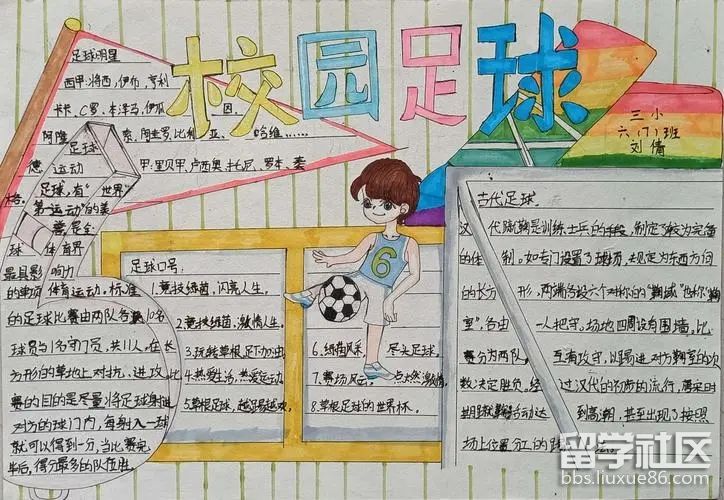 校园足球
三小
六(1)班
刘倩
足球明星
西甲:梅西,伊布,亨利
卡卡,C罗,本泽马,伊瓜因.
阿隆索,阿圭罗,比利亚,哈维……
德甲:里贝甲,卢西奥,托尼,罗本,
足球
运动
足球,有“世界
第一运动”的美
誉,是全
球体育界
最具影响力
的单项体育运动,标准
的足球比赛由两队各10名
球员与1名守门员,共11人,在长
方形的草地上对抗、进攻,比
赛的目的是尽量将足球射进
对方的球门内,每射入一球
就可以得到一分,当比赛完
毕后,得分最多的队伍胜。
足球口号:
1.竞技绿茵,闪亮人生。
2.竞技绿茵,激情人生。
3.玩转草根,足下加油
4.热爱生活,热爱运动
5.草根足球,越踢越欢。
6.绿茵风采 尽头足球。
7.赛场风云, 点燃激情。
8.草根足球的世界杯。
6
古代足球。
汉代蹴鞠是训练士兵的手段,制定了较为完备
的体制。如专门设置了球场,规定为东西方向
的长方形,两端各设六个对称的“鞠域”也称“鞠
室”,各由一人把守。场地四周设有围墙,比
赛分为两队,互有攻守,以踢进对方鞠室的次
数决定胜负,经过汉代的初步的流行,唐宋时
期蹴鞠活动达到高潮,甚至出现了按照
场上位置分工的踢
留学社区
bbs.liuxue86.com